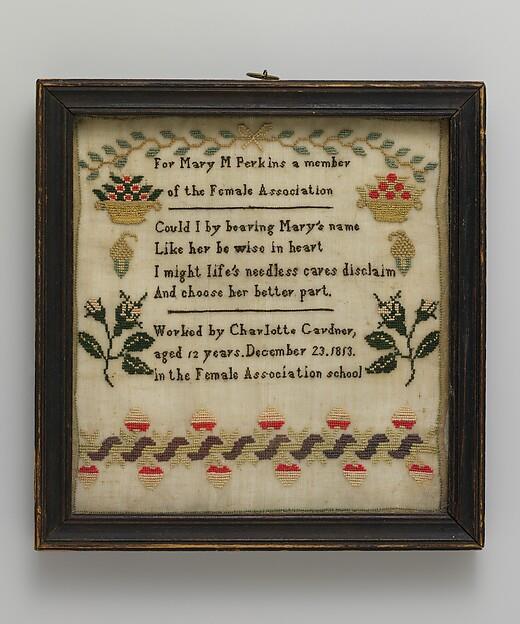 For Mary M Perkins a member
of the Female Association
Could I by bearing Mary's name
Like her be wise in heart
I might life's needless cares disclaim
And choose her better part.
Worked by Charlotte Gardner,
aged 12 years. December 23. 1813.
in the Female Association school